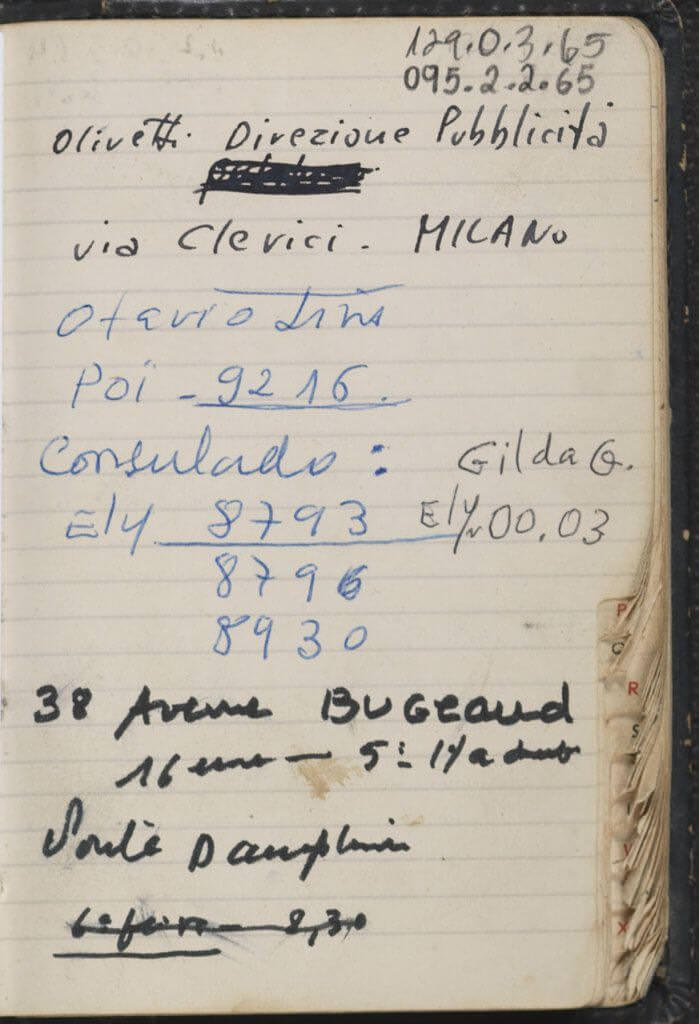 129.0.3.65
095.2.2.65
Olivetti. Direzione Pubblicità
via Clerici. MILANO
Otavio
Poï - 9216.
Consulado : Gilda G.
Ely 8793 Ely 00.03
8796
8930
38 Avenue BUGEAUD
16 eme — 5º
Porte Dauphine
6ª feira - 8,30
P
R
S
X